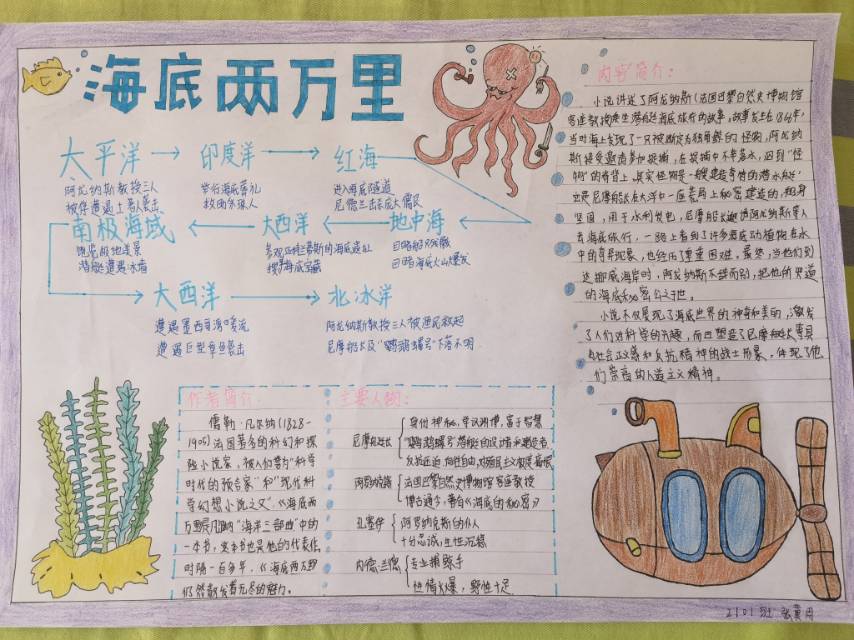 海底两万里
太平洋 → 印度洋 → 红海
阿龙纳斯教授三人
被俘遭遇土著人袭击
举行海底葬礼
救助采珠人
进入海底隧道
尼德兰击杀庞大儒艮
南极海域 ← 大西洋 ← 地中海
观览极地美景
潜艇遭遇冰墙
参观亚特兰蒂斯的海底遗址
探寻海底宝藏
目睹船只残骸
目睹海底火山爆发
大西洋 → 北冰洋
遭遇墨西哥湾暖流
遭遇巨型章鱼袭击
阿龙纳斯教授三人被渔民救起
尼摩船长及"鹦鹉螺号"下落不明
内容简介:
小说讲述了阿龙纳斯(法国巴黎自然史博物馆
客座教授)乘坐潜艇海底旅行的故事,故事发生在1866年,
当时海上发现了一只被断定为独角鲸的怪物,阿龙纳
斯接受邀请参加捕捉,在捕捉中不幸落水,泅到"怪
物"的脊背上,其实怪物是一艘建造奇特的潜水艇,
这是尼摩船长在大洋中一座荒岛上秘密建造的,船身
坚固,用于水利发电,尼摩船长邀请阿龙纳斯等人
去海底旅行,一路上看到了许多海底动植物在水
中的奇异现象,也经历了重重困难,最终,当他们到
达挪威海岸时,阿龙纳斯不辞而别,把他所知道
的海底秘密公之于世。
小说不仅展现了海底世界的神奇和美丽,激发
了人们对科学的兴趣,而且塑造了尼摩船长等具
有社会正义感和反抗精神的战士形象,体现了他
们崇高的人道主义精神。
作者简介:
儒勒·凡尔纳(1828-
1905)法国著名的科幻和探
险小说家,被人们誉为"科学
时代的预言家"和"现代科
学幻想小说之父",《海底两
万里》是凡尔纳"海洋三部曲"中的
一本书,这本书也是他的代表作
时隔一百多年,《海底两万里》
仍然散发着无尽的魅力。
主要人物:
尼摩船长
身份神秘,学识渊博,富于智慧
"鹦鹉螺号"潜艇的设计者和建造者
反抗压迫,向往自由,对殖民主义极度蔑视
阿龙纳斯
法国巴黎自然史博物馆客座教授
博古通今,著有《海底的秘密》
孔塞伊
阿罗纳克斯的仆人
十分忠诚,生性沉稳
内德·兰德
专业捕鲸手
性情火爆,野性十足
2101班